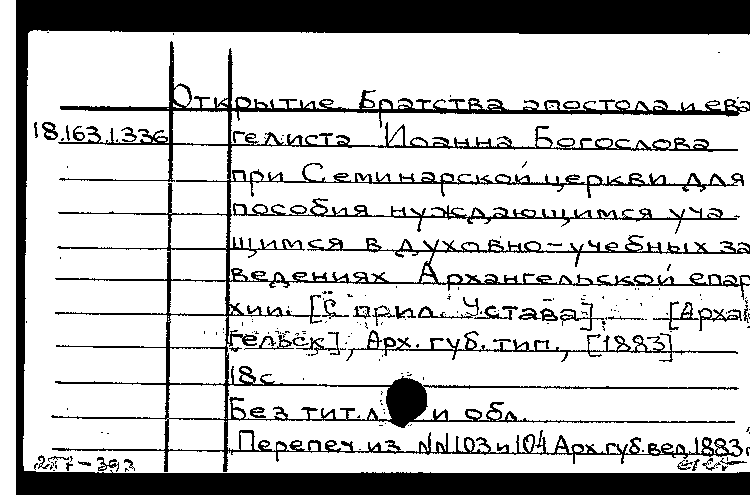 Открытие Братства апостола и ева
18.163.1.336 гелиста Иоанна Богослова
при Семинарской церкви для
пособия нуждающимся уча-
щимся в духовно-учебных за
ведениях Архангельской епар
хии. [С прил. Устава]. [Архан
гельск], Арх. губ. тип., [1883]
18 с.
Без тит. л и обл.
Перепеч. из NN 103 и 104 Арх. губ. вед. 1883 г
277-393